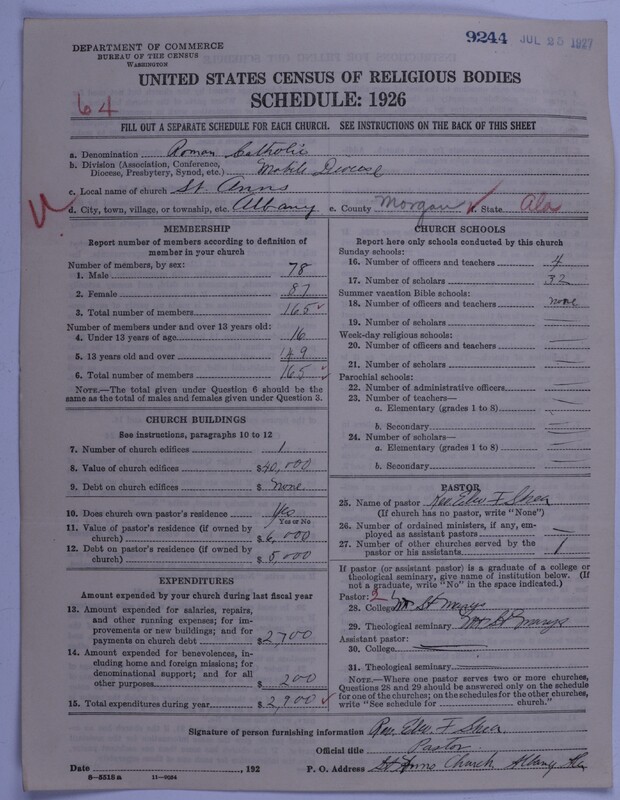 9244 JUL 25 1927
DEPARTMENT OF COMMERCE
BUREAU OF THE CENSUS
WASHINGTON
UNITED STATES CENSUS OF RELIGIOUS BODIES
64
SCHEDULE: 1926
FILL OUT A SEPARATE SCHEDULE FOR EACH CHURCH. SEE INSTRUCTIONS ON THE BACK OF THIS SHEET
a. Denomination Roman Catholic
b. Division (Association, Conference, Diocese, Presbytery, Synod, etc.) Mobile Diocese
c. Local name of church St. Anns
d. City, town, village, or township, etc. Albany e. County Morgan f. State Ala
MEMBERSHIP
Report number of members according to definition of
member in your church
Number of members, by sex:
1. Male 78
2. Female 87
3. Total number of members 165
Number of members under and over 13 years old:
4. Under 13 years of age 16
5. 13 years old and over 149
6. Total number of members 165
NOTE.—The total given under Question 6 should be the
same as the total of males and females given under Question 3.
CHURCH BUILDINGS
See instructions, paragraphs 10 to 12
7. Number of church edifices 1
8. Value of church edifices $40,000
9. Debt on church edifices $ None.
10. Does church own pastor's residence Yes
Yes or No
11. Value of pastor's residence (if owned by
church) $6,000
12. Debt on pastor's residence (if owned by
church) $5,000
EXPENDITURES
Amount expended by your church during last fiscal year
13. Amount expended for salaries, repairs,
and other running expenses; for im-
provements or new buildings; and for
payments on church debt $2,700
14. Amount expended for benevolences, in-
cluding home and foreign missions; for
denominational support; and for all
other purposes $ 200
15. Total expenditures during year $2,900
CHURCH SCHOOLS
Report here only schools conducted by this church
Sunday schools:
16. Number of officers and teachers 4
17. Number of scholars 32
Summer vacation Bible schools:
18. Number of officers and teachers none
19. Number of scholars
Week-day religious schools:
20. Number of officers and teachers
21. Number of scholars
Parochial schools:
22. Number of administrative officers
23. Number of teachers—
a. Elementary (grades 1 to 8)
b. Secondary
24. Number of scholars—
a. Elementary (grades 1 to 8)
b. Secondary
PASTOR
25. Name of pastor Rev. Edw F Shea
(If church has no pastor, write "None")
26. Number of ordained ministers, if any, em-
ployed as assistant pastors
27. Number of other churches served by the
pastor or his assistants 1
If pastor (or assistant pastor) is a graduate of a college or
theological seminary, give name of institution below. (If
not a graduate, write "No" in the space indicated.)
Pastor:
28. College Mt St Marys
29. Theological seminary Mt St Marys
Assistant pastor:
30. College
31. Theological seminary
NOTE.—Where one pastor serves two or more churches,
Questions 28 and 29 should be answered only on the schedule
for one of the churches; on the schedules for the other churches,
write "See schedule for church."
Signature of person furnishing information Rev. Edw F Shea.
Official title Pastor.
Date , 192 P. O. Address St Anns Church Albany Ala
8—5518a 11—9264